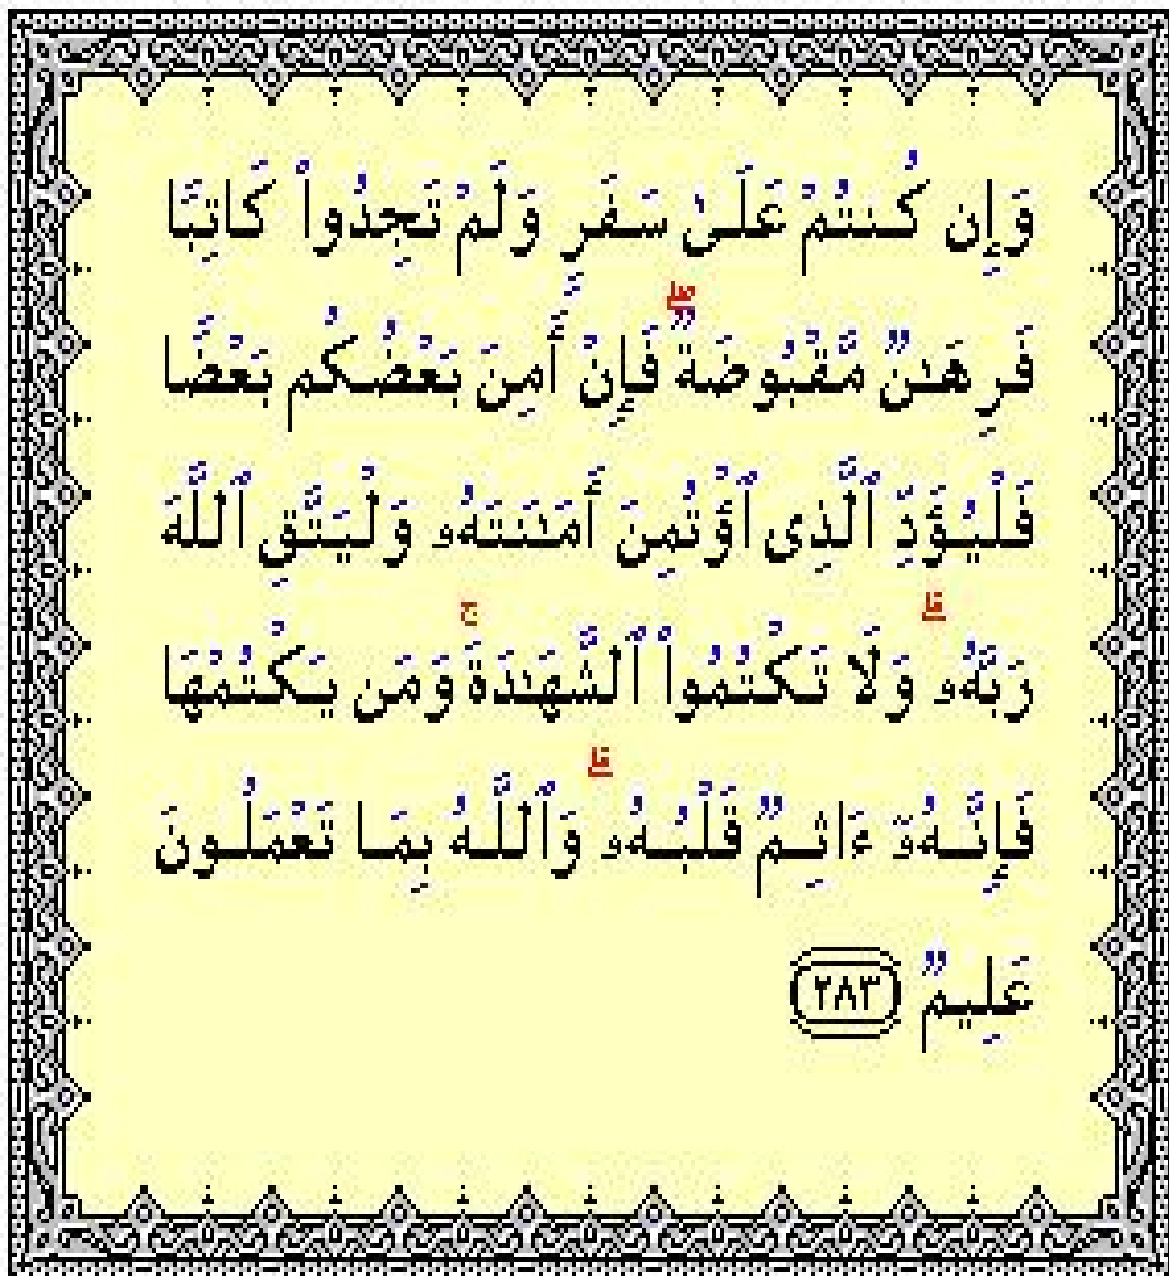 وَإِن كُنتُمْ عَلَىٰ سَفَرٍ وَلَمْ تَجِدُوا۟ كَاتِبًا
فَرِهَـٰنٌ مَّقْبُوضَةٌ ۖ فَإِنْ أَمِنَ بَعْضُكُم بَعْضًا
فَلْيُؤَدِّ ٱلَّذِى ٱؤْتُمِنَ أَمَـٰنَتَهُۥ وَلْيَتَّقِ ٱللَّهَ
رَبَّهُۥ ۗ وَلَا تَكْتُمُوا۟ ٱلشَّهَـٰدَةَ ۚ وَمَن يَكْتُمْهَا
فَإِنَّهُۥٓ ءَاثِمٌ قَلْبُهُۥ ۗ وَٱللَّهُ بِمَا تَعْمَلُونَ
عَلِيمٌ ٢٨٣